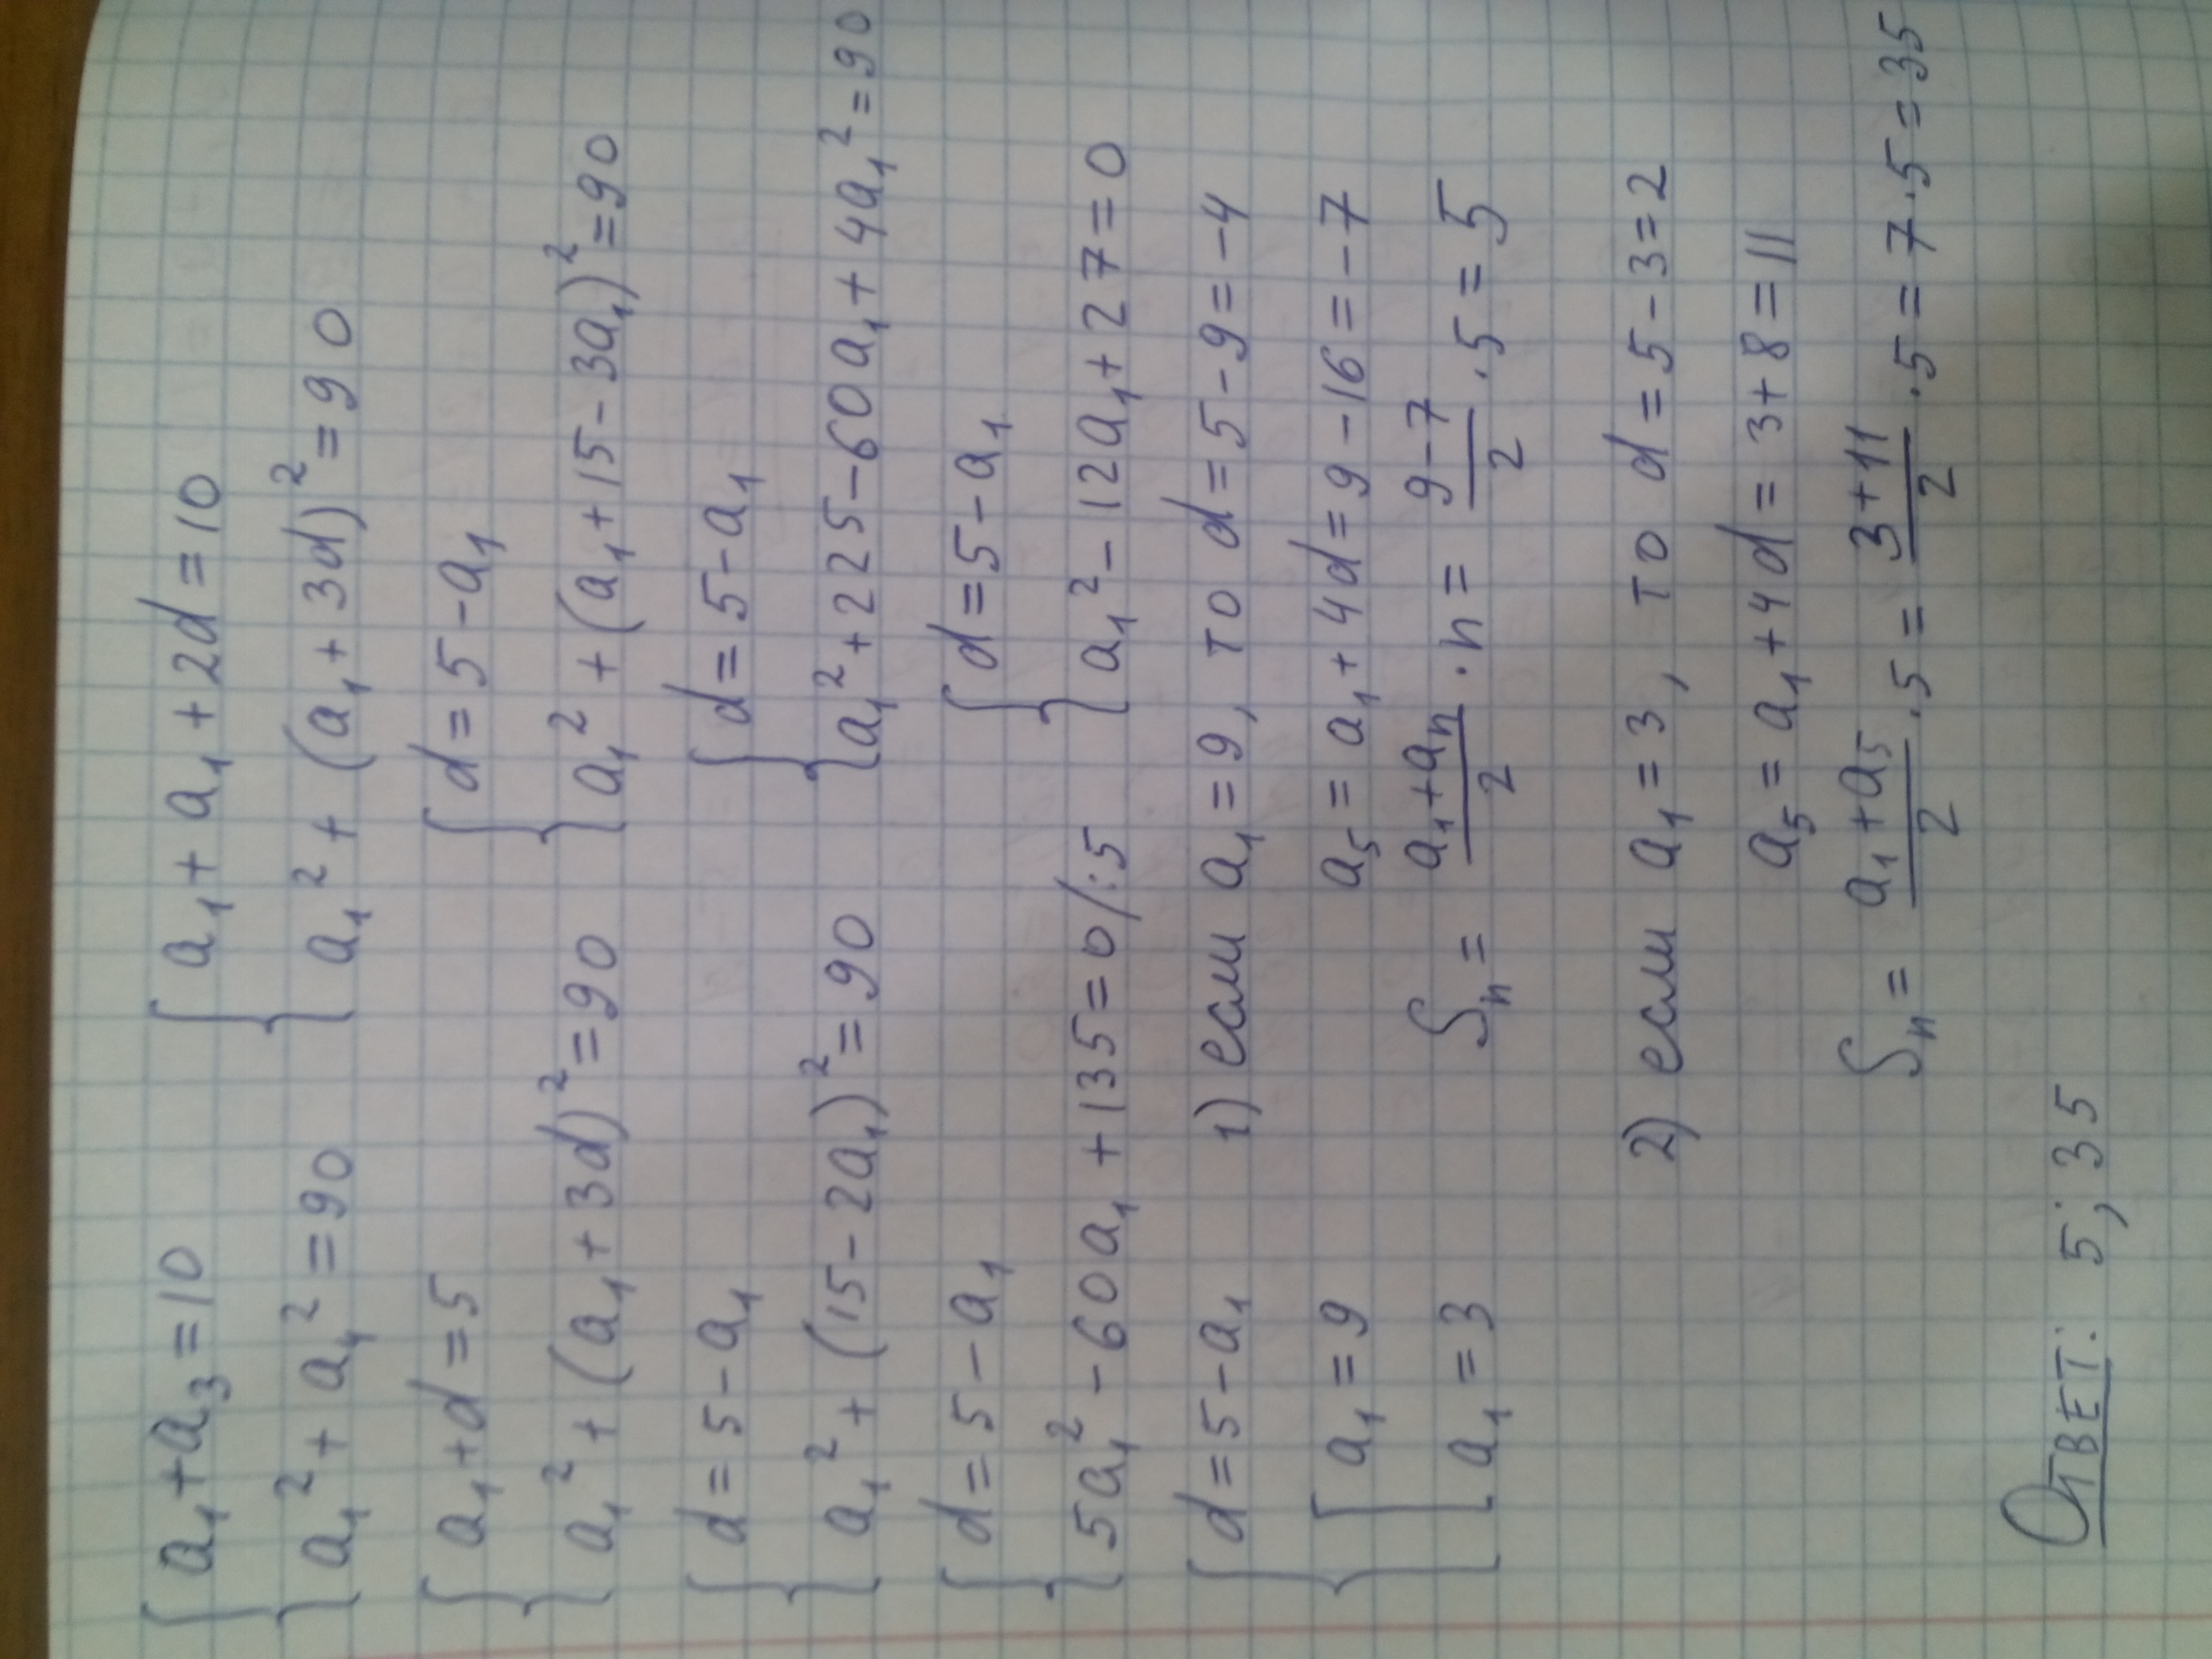 {a₁+a₃=10 {a₁+a₁+2d=10
{a₁²+a₄²=90 {a₁²+(a₁+3d)²=90
{a₁+d=5 {d=5-a₁
{a₁²+(a₁+3d)²=90 {a₁²+(a₁+15-3a₁)²=90
{d=5-a₁ {d=5-a₁
{a₁²+(15-2a₁)²=90 {a₁²+225-60a₁+4a₁²=90
{d=5-a₁ {d=5-a₁
{5a₁²-60a₁+135=0/:5 {a₁²-12a₁+27=0
{d=5-a₁ 1) если a₁=9, то d=5-9=-4
{[a₁=9 a₅=a₁+4d=9-16=-7
[a₁=3 Sₙ=(a₁+aₙ)/2·n=(9-7)/2·5=5
2) если a₁=3, то d=5-3=2
a₅=a₁+4d=3+8=11
Sₙ=(a₁+a₅)/2·5=(3+11)/2·5=7·5=35
Ответ: 5; 35